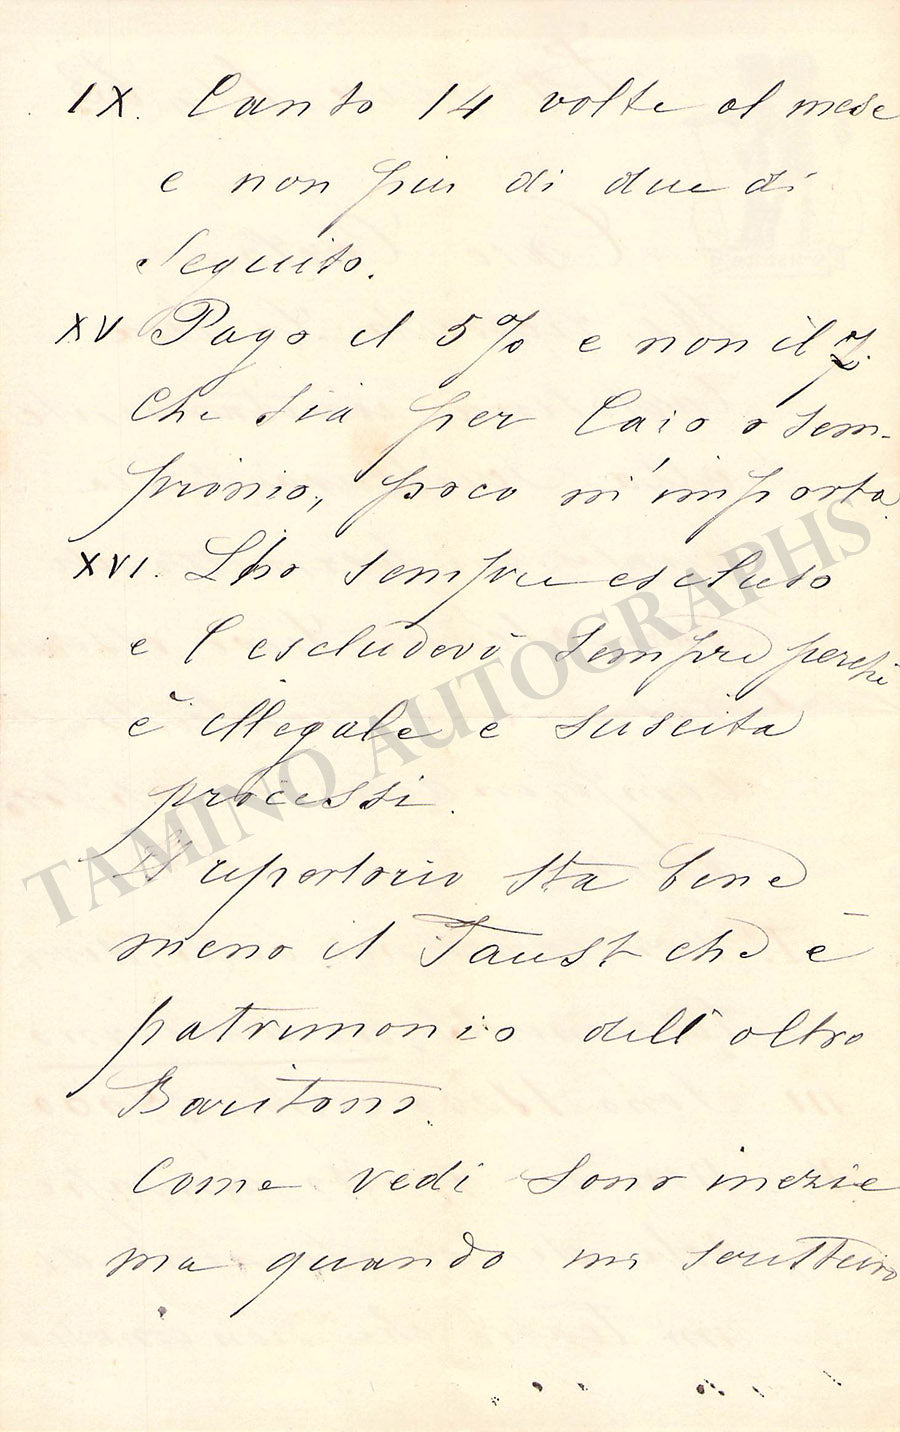 IX. Canto 14 volte al mese
e non più di due di
seguito.
XV Pago il 5% e non il 7.
Che sia per Caio o Sem-
pronio, poco m'importa.
XVI. L'ho sempre escluso
e l'escluderò sempre perchè
è illegale e suscita
processi.
Il repertorio sta bene
meno il Faust che è
patrimonio dell'altro
Baritono.
Come vedi sono inezie
ma quando mi
TAMINO AUTOGRAPHS